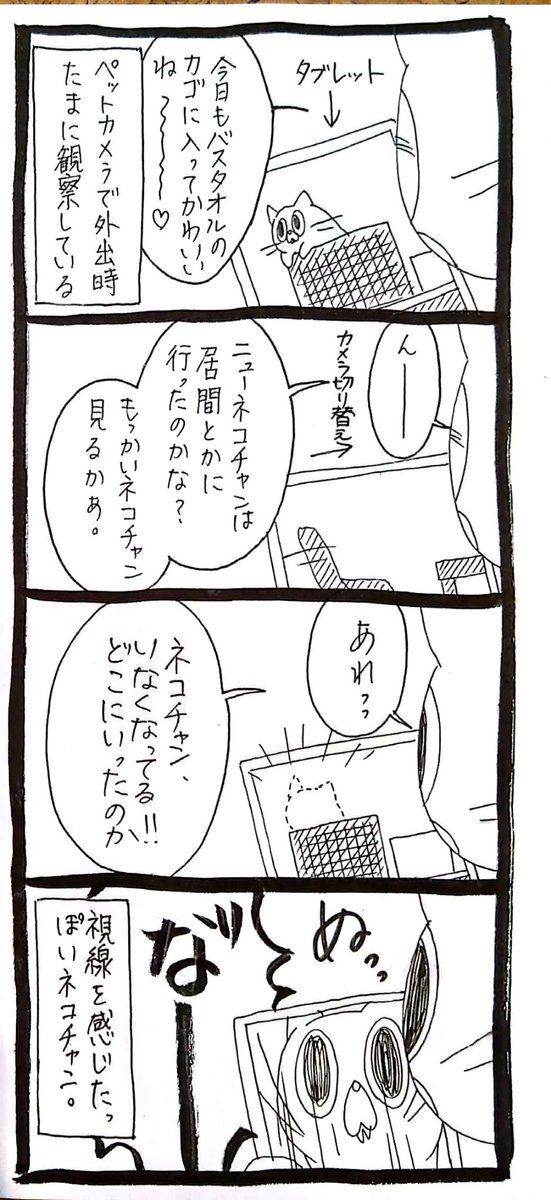 タブレット
今日もバスタオルの
カゴに入ってかわいい
ね〜〜〜♡
ペットカメラで外出時
たまに観察している
んーー
カメラ切り替え
ニューネコチャンは
居間とかに
行ったのかな?
もっかいネコチャン
見るかぁ。
あれっっ
ネコチャン、
いなくなってる!!
どこにいったのか
ぬっっ
なー
視線を感じたっ
ぽいネコチャン。